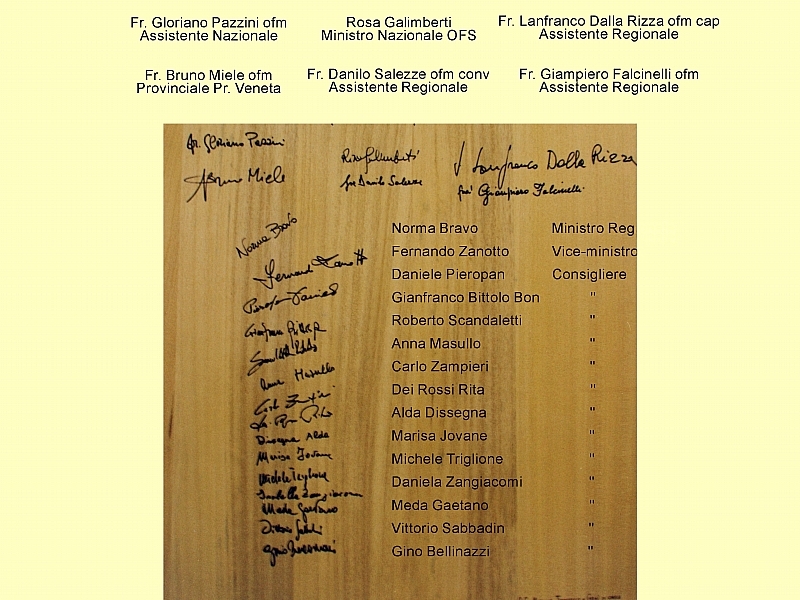 Fr. Gloriano Pazzini ofm
Assistente Nazionale
Rosa Galimberti
Ministro Nazionale OFS
Fr. Lanfranco Dalla Rizza ofm cap
Assistente Regionale
Fr. Bruno Miele ofm
Provinciale Pr. Veneta
Fr. Danilo Salezze ofm conv
Assistente Regionale
Fr. Giampiero Falcinelli ofm
Assistente Regionale
fr. Gloriano Pazzini
Rosa Galimberti
Lanfranco Dalla Rizza
Bruno Miele
fra Danilo Salezze
fra' Giampiero Falcinelli
Norma Bravo
Norma Bravo Ministro Reg
Fernando Zanotto Vice-ministro
Daniele Pieropan Consigliere
Gianfranco Bittolo Bon "
Roberto Scandaletti "
Anna Masullo "
Carlo Zampieri "
Dei Rossi Rita "
Alda Dissegna "
Dissegna Alda
Marisa Jovane "
Marisa Jovane
Michele Triglione "
Michele Triglione
Daniela Zangiacomi "
Daniela Zangiacomi
Meda Gaetano "
Meda Gaetano
Vittorio Sabbadin "
Gino Bellinazzi "